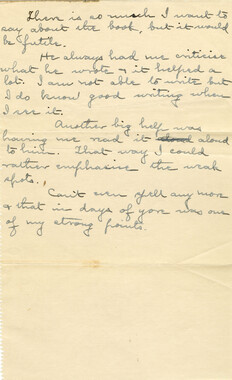 There is so much I want to
say about the book, but it would
be futile.
He always had me criticise
what he wrote & it helped a
lot. I am not able to write but
I do know good writing when
I see it.
Another big help was
having me read it aloud
to him. That way I could
rather emphasise the weak
spots.
Can't even spell any more
& that in days of yor was one
of my strong points.